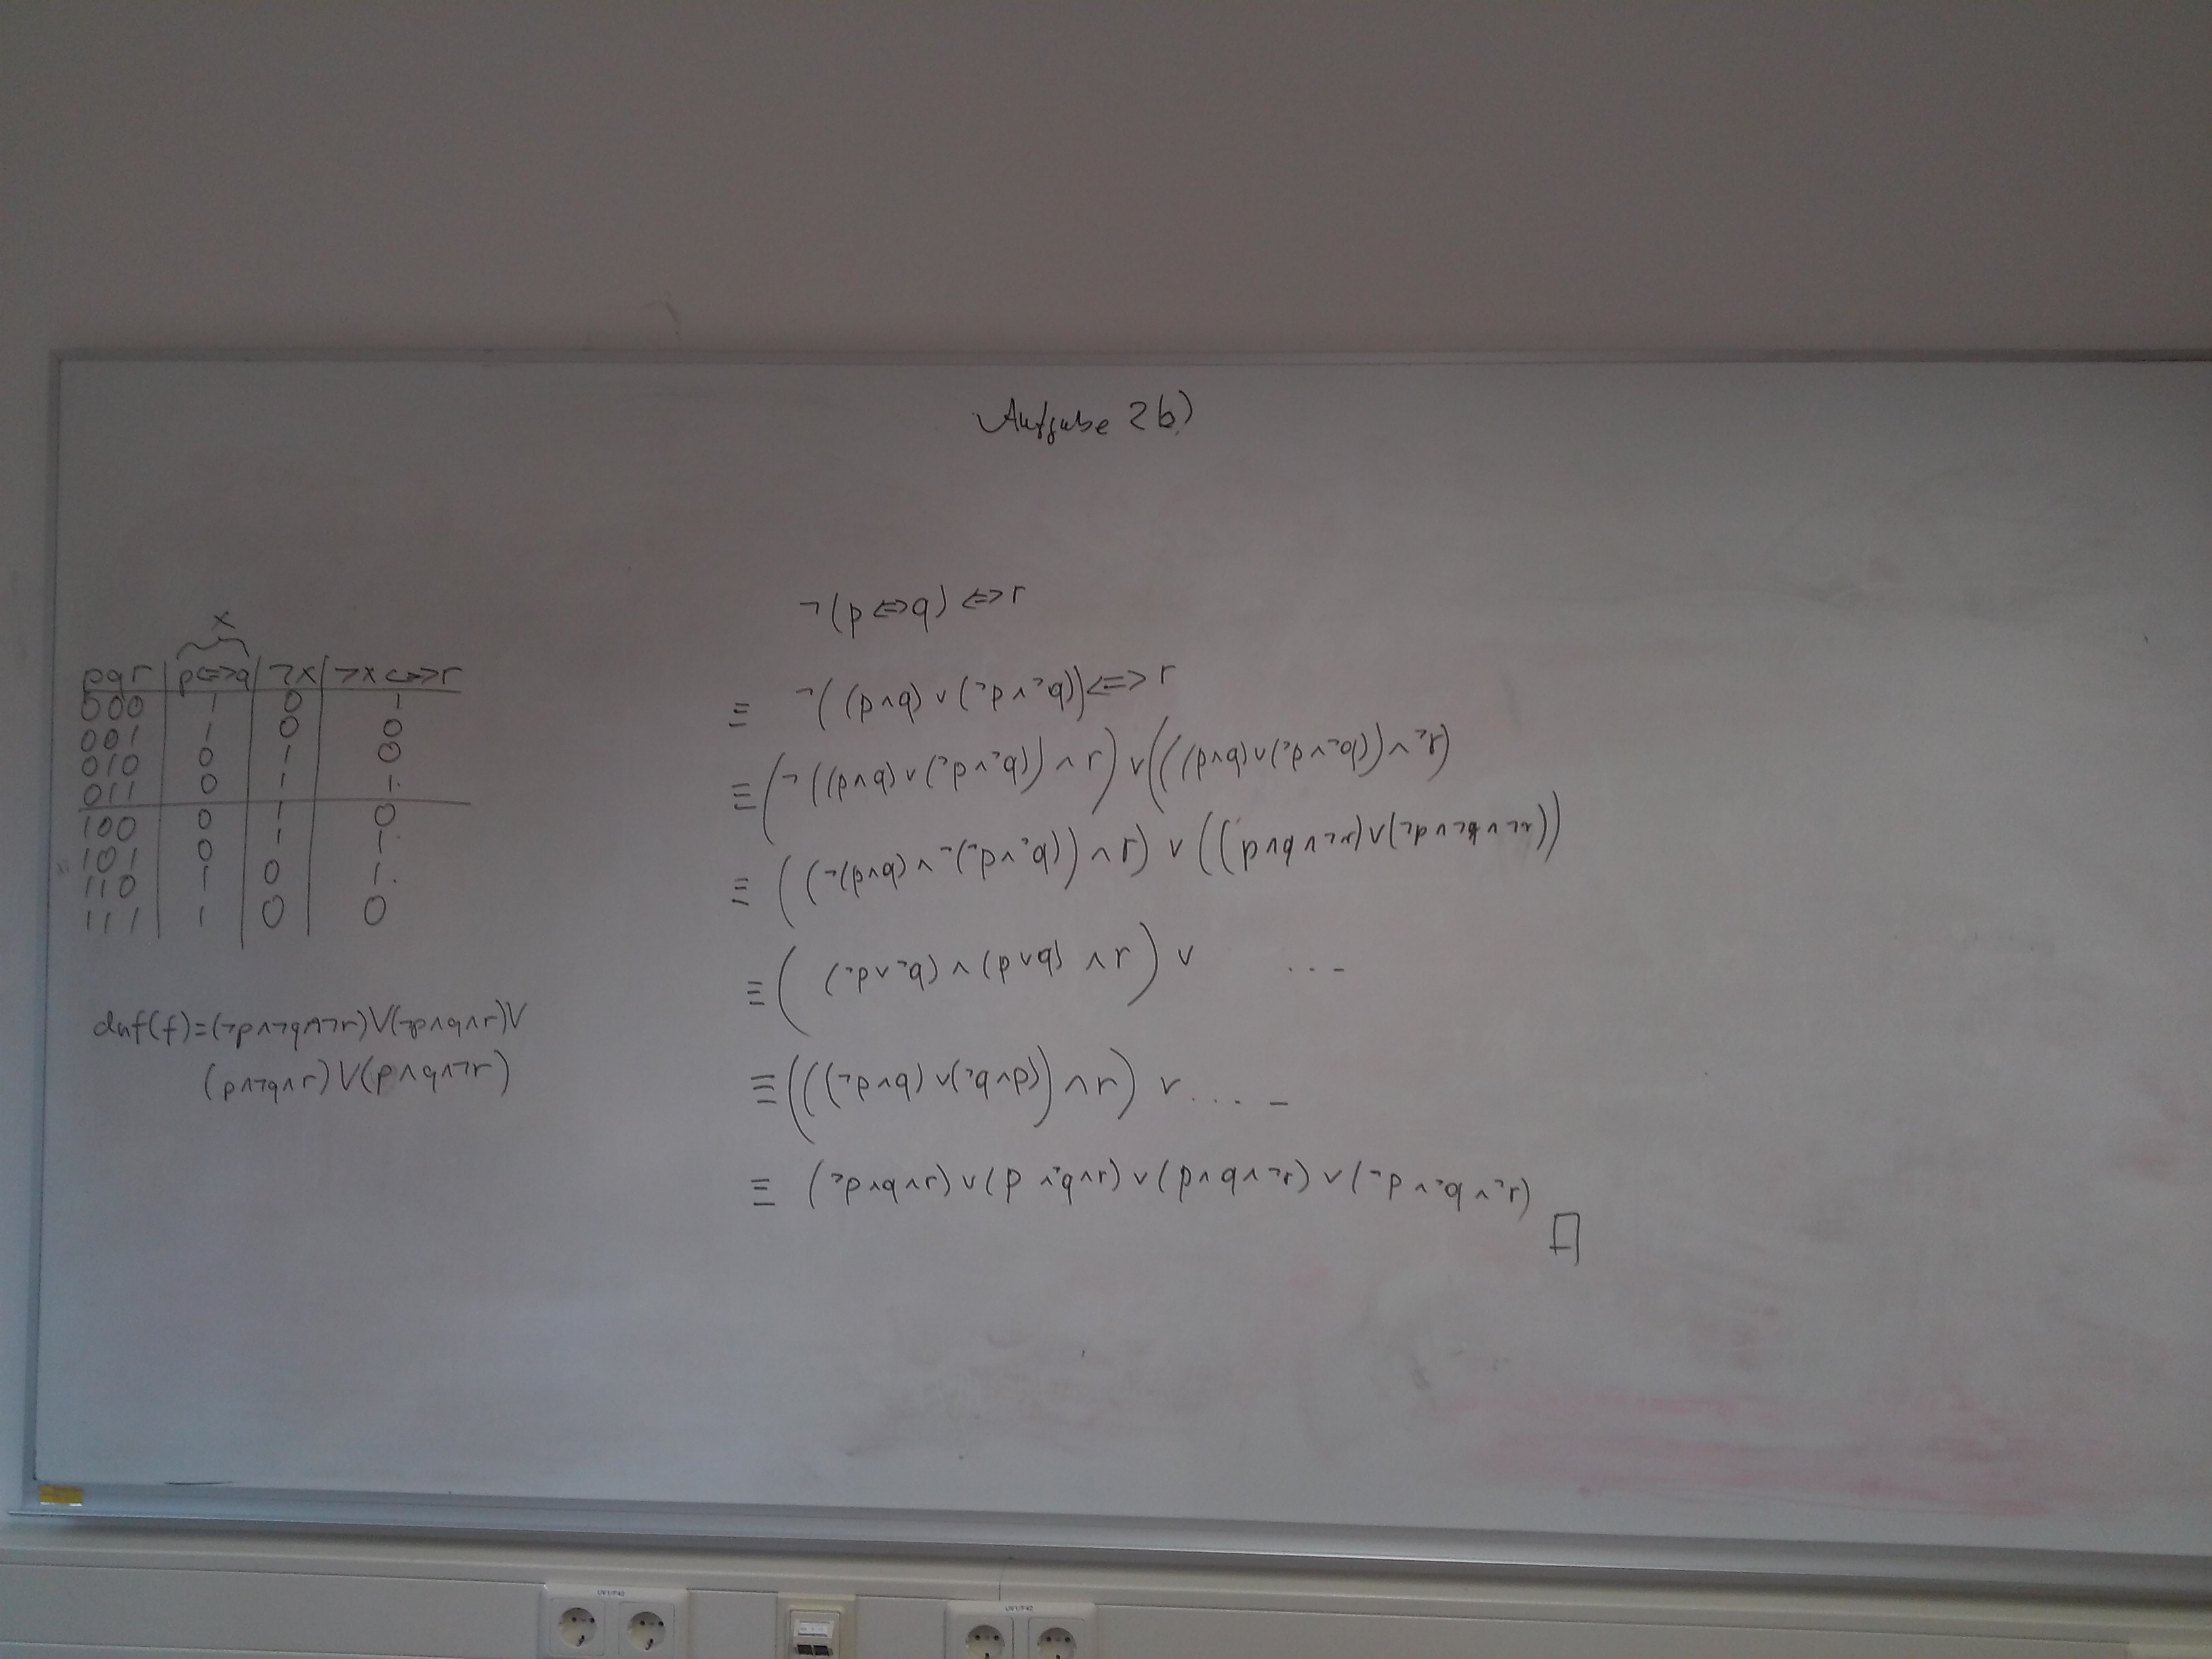 Aufgabe 2b)
x
pqr | p<=>q | ¬x | ¬x <=> r
000 | 1 | 0 | 1
001 | 1 | 0 | 0
010 | 0 | 1 | 0
011 | 0 | 1 | 1.
100 | 0 | 1 | 0
101 | 0 | 1 | 1.
110 | 1 | 0 | 1.
111 | 1 | 0 | 0
dnf(f)=(¬p∧¬q∧¬r)∨(¬p∧q∧r)∨
(p∧¬q∧r)∨(p∧q∧¬r)
¬(p<=>q) <=> r
≡ ¬((p∧q)∨(¬p∧¬q))<=> r
≡ (¬((p∧q)∨(¬p∧¬q))∧r)∨(((p∧q)∨(¬p∧¬q))∧¬r)
≡ ((¬(p∧q)∧¬(¬p∧¬q))∧r)∨((p∧q∧¬r)∨(¬p∧¬q∧¬r))
≡ ((¬p∨¬q)∧(p∨q)∧r)∨ ...
≡ (((¬p∧q)∨(¬q∧p))∧r)∨....
≡ (¬p∧q∧r)∨(p∧¬q∧r)∨(p∧q∧¬r)∨(¬p∧¬q∧¬r)
□